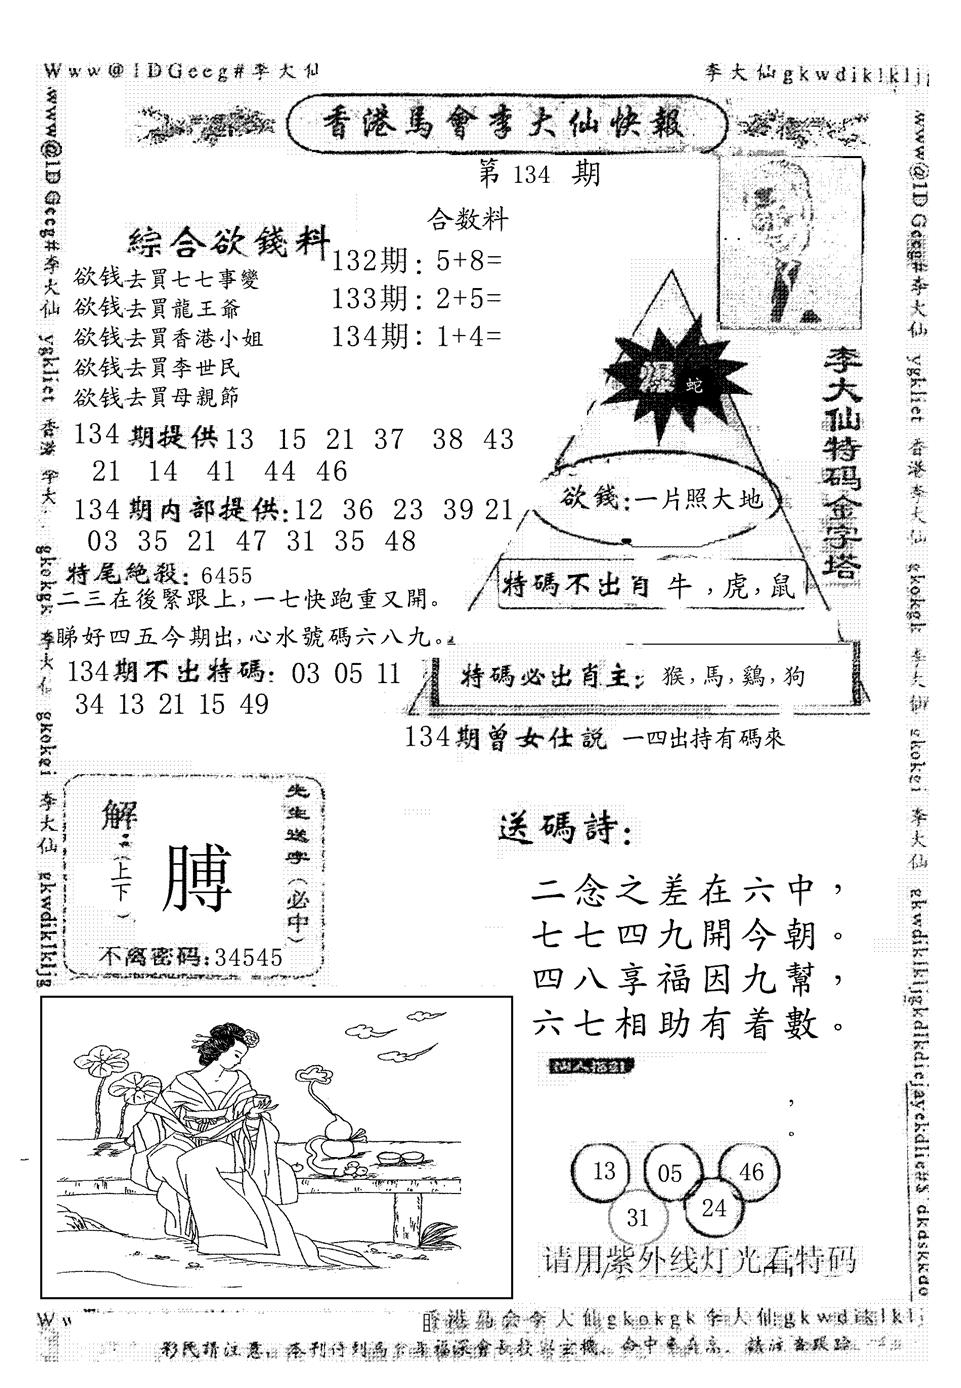 Www@1DGeeg#李大仙
李大仙gkwdiklkljg
香港馬會李大仙快報
第 134 期
合数料
綜合欲錢料
132期: 5+8=
133期: 2+5=
134期: 1+4=
欲钱去買七七事變
欲钱去買龍王爺
欲钱去買香港小姐
欲钱去買李世民
欲钱去買母親節
134期提供 13 15 21 37 38 43
21 14 41 44 46
134期内部提供:12 36 23 39 21
03 35 21 47 31 35 48
特尾絶殺: 6455
二三在後緊跟上,一七快跑重又開。
睇好四五今期出,心水號碼六八九。
134期不出特碼: 03 05 11
34 13 21 15 49
李大仙特码金字塔
爆 蛇
欲錢:一片照大地
特碼不出肖 牛,虎,鼠
特碼必出肖主: 猴,馬,鷄,狗
134期曾女仕説 一四出持有碼來
先生送字(必中)
解:(上下)
膊
不离密码:34545
送碼詩:
二念之差在六中,
七七四九開今朝。
四八享福因九幫,
六七相助有着數。
,
。
13 05 46
31 24
请用紫外线灯光看特码
www@1DGeeg#李大仙 ygkliet 香港李大 gkokgk 李大仙 gkokei 李大仙 gkwdiklkljg
www@1DGeeg#李大仙 ygkliet 香港李大仙 gkokgk 李大仙 gkokei 李大仙 gkwdiklkljgkdlkdiejayekdlie#$ dkdskkdo
香港馬会李大仙gkokgk李大仙gkwdiklklj